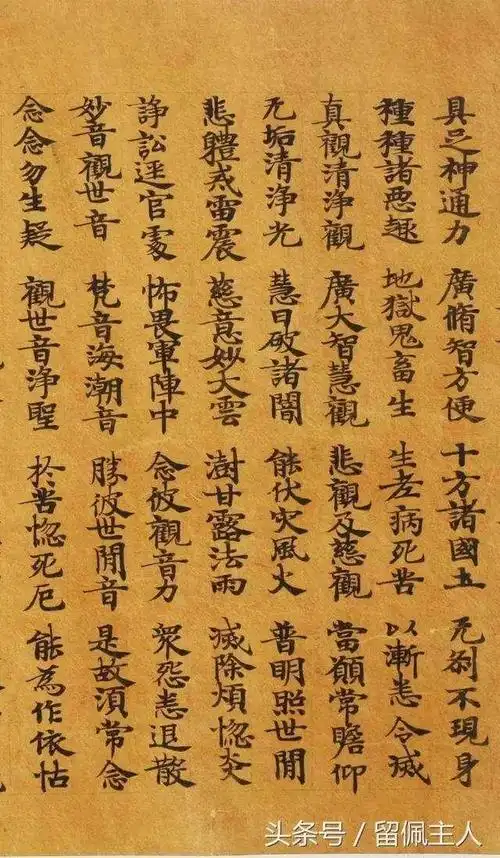 具足神通力 廣脩智方便 十方諸國土 无刹不現身
種種諸惡趣 地獄鬼畜生 生老病死苦 以漸悉令滅
真觀清淨觀 廣大智慧觀 悲觀及慈觀 當願常瞻仰
无垢清淨光 慧日破諸闇 能伏灾風火 普明照世間
悲體戒雷震 慈意妙大雲 澍甘露法雨 滅除煩惚炎
諍訟逕官處 怖畏軍陣中 念彼觀音力 衆怨悉退散
妙音觀世音 梵音海潮音 勝彼世間音 是故須常念
念念勿生疑 觀世音淨聖 於苦惚死厄 能為作依怙
头条号 / 留佩主人